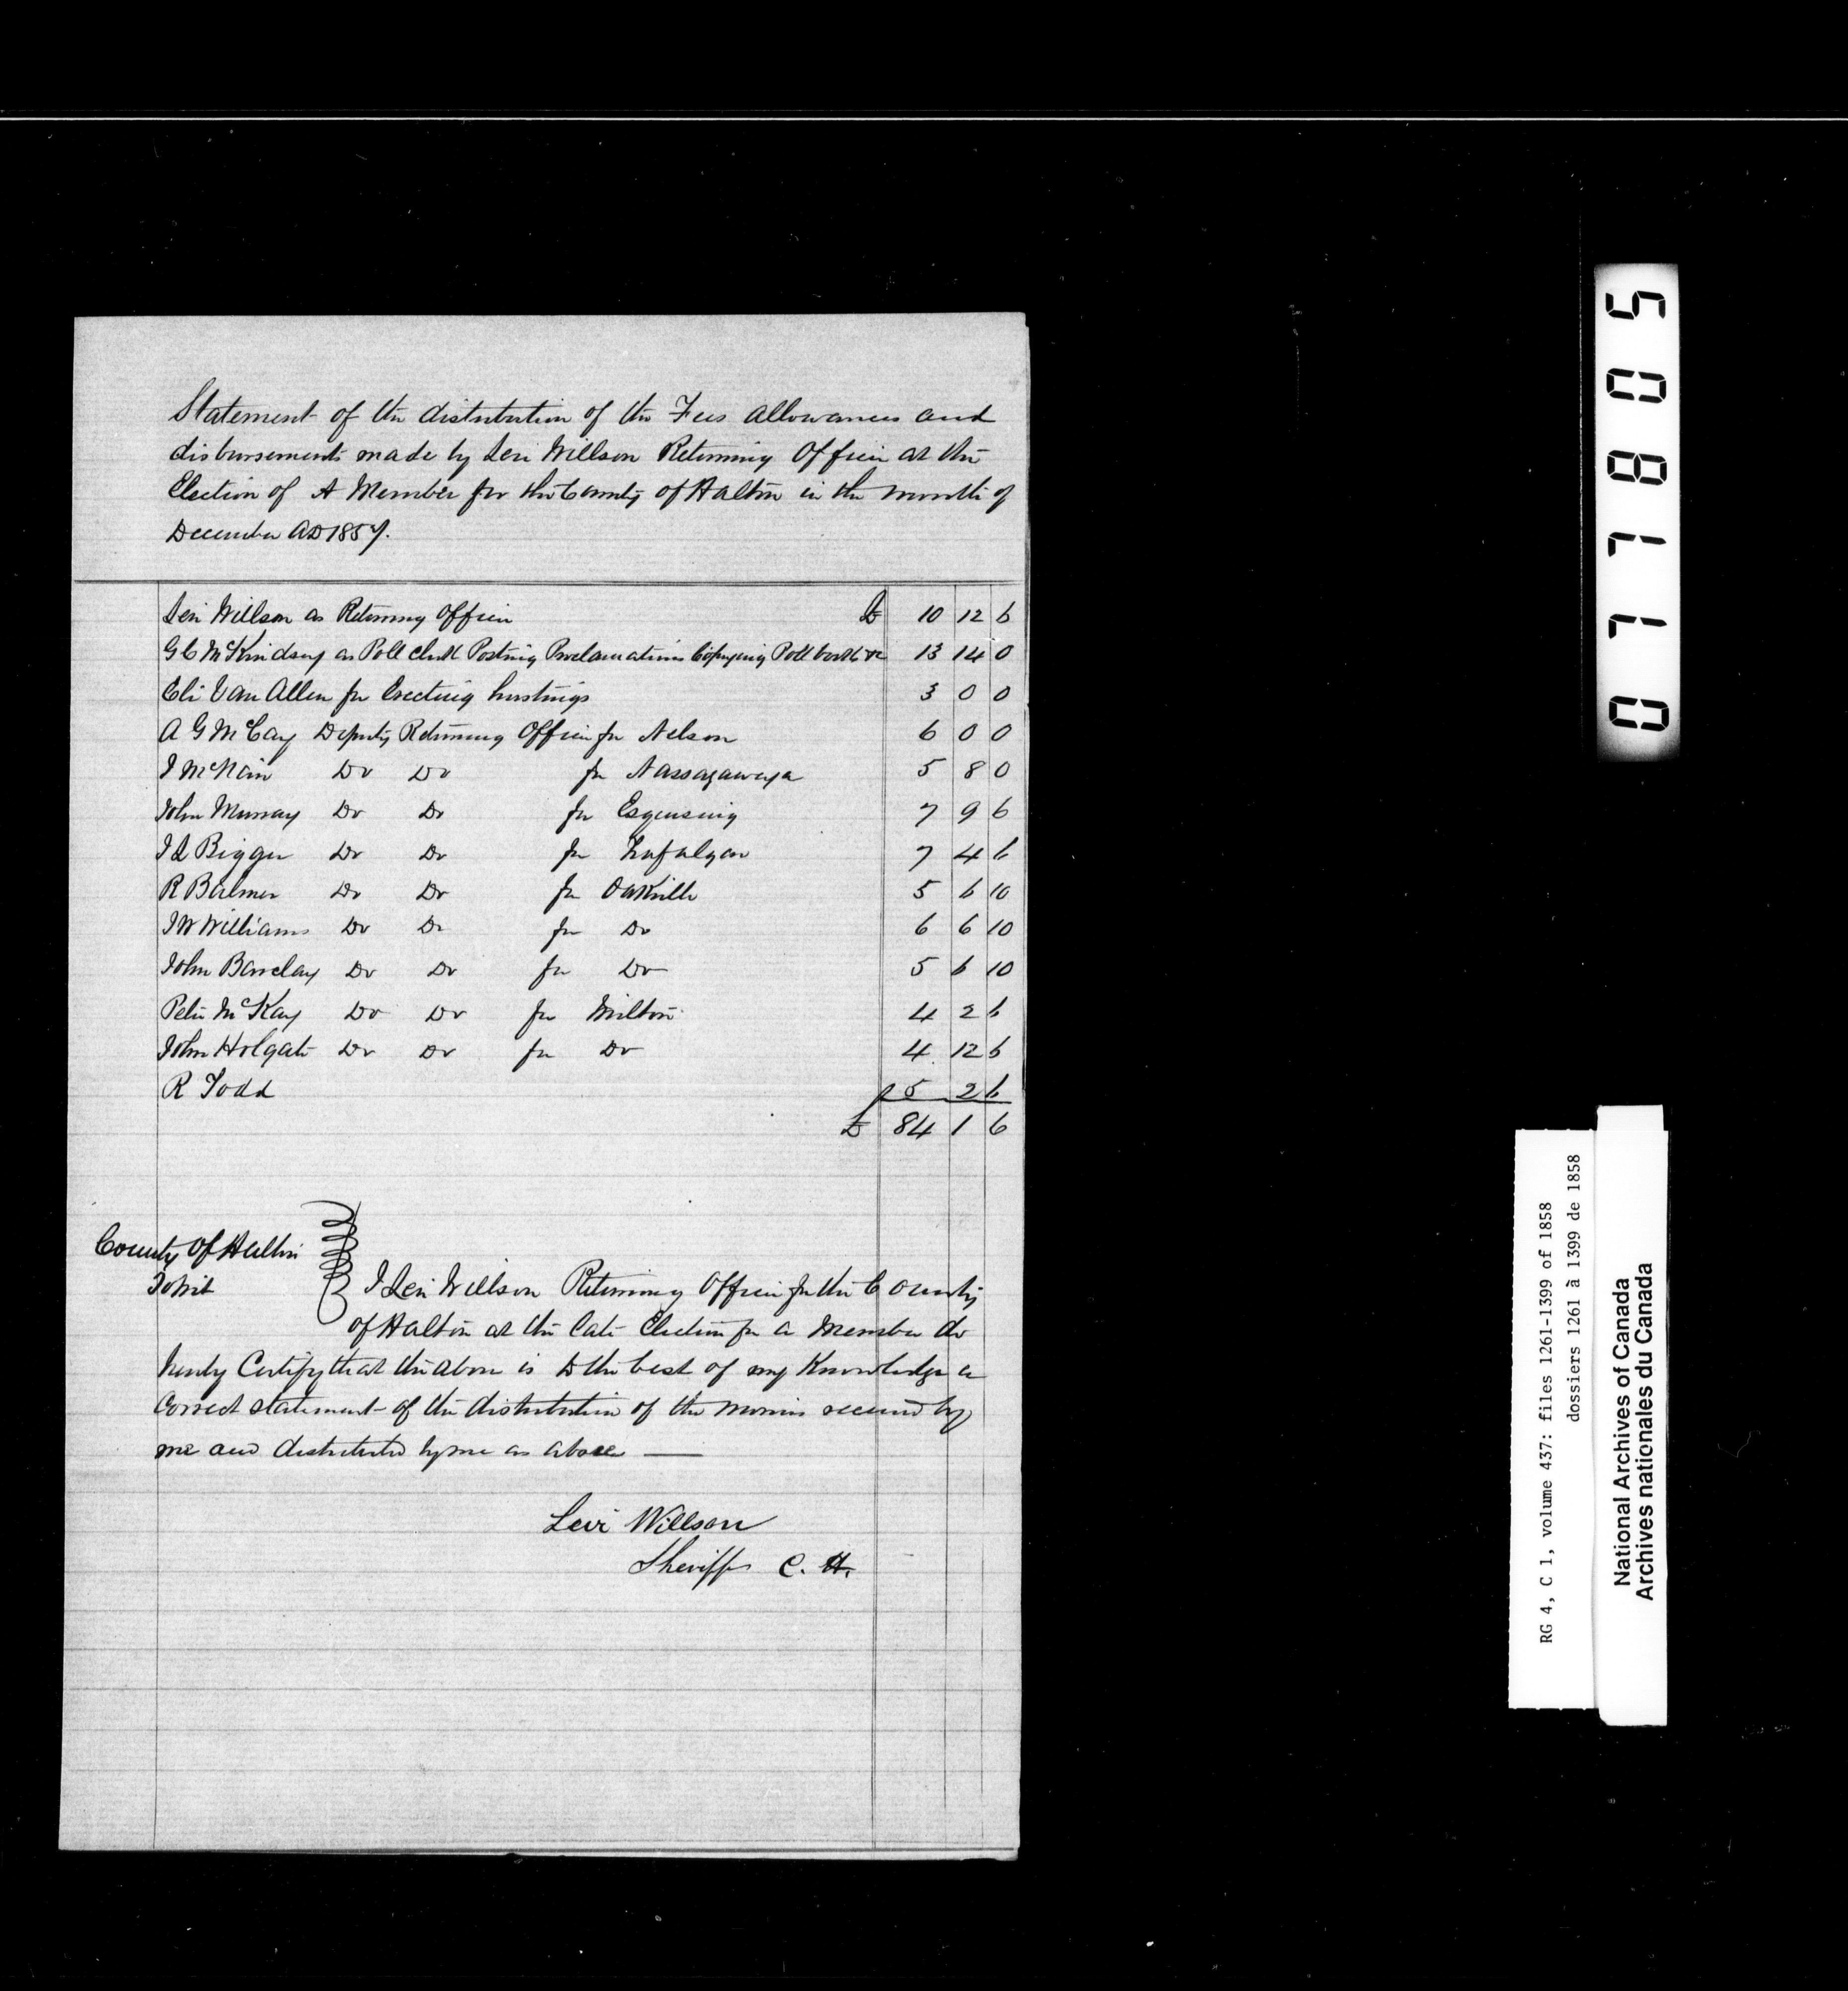 Statement of the distribution of the Fees Allowances and
disbursements made by Levi Willson Returning Officer at the
Election of A Member for the County of Halton in the month of
December AD 1857.
Levi Willson as Returning Officer £ 10 12 6
G C McKindsey as Poll Clerk Posting Proclamations Copying Poll books &c 13 14 0
Eli Van Allen for Erecting hustings 3 0 0
A G McCay Deputy Returning Officer for Nelson 6 0 0
J McNair Do Do for Nassagaweya 5 8 0
John Murray Do Do for Esquesing 7 9 6
J L Bigger Do Do for Trafalgar 7 4 6
R Balmer Do Do for Oakville 5 6 10
J W Williams Do Do for Do 6 6 10
John Barclay Do Do for Do 5 6 10
Peter McKay Do Do for Milton 4 2 6
John Holgate Do Do for Do 4 12 6
R Todd 5 2 6
£ 84 1 6
County of Halton
To Wit
I Levi Willson Returning Officer for the County
of Halton at the late Election for a Member do
hereby Certify that the above is to the best of my Knowledge a
Correct statement of the distribution of the monies received by
me and distributed by me as above
Levi Willson
Sheriff C. H.
077805
RG 4, C 1, volume 437: files 1261-1399 of 1858
dossiers 1261 à 1399 de 1858
National Archives of Canada
Archives nationales du Canada